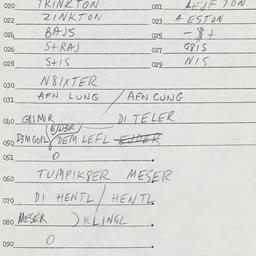 020 TRINKTON 021 LEJFTON
022 ZINKTON 023 A ESTON
024 BAJS 025 -$+
026 S+RAJ 027 G8IS
028 S+IS 029 NIS
030 N8IXTER
031 AFN LUNG / AFN CUNG
040 G8IMIR DI TELER
EJD3R
050 D3M GOPL DEM LEFL EJDER
051 0
060 TUMPIK8ER MESER
070 DI HENTL / HENTL
080 MESER ) KLINGL
090 0